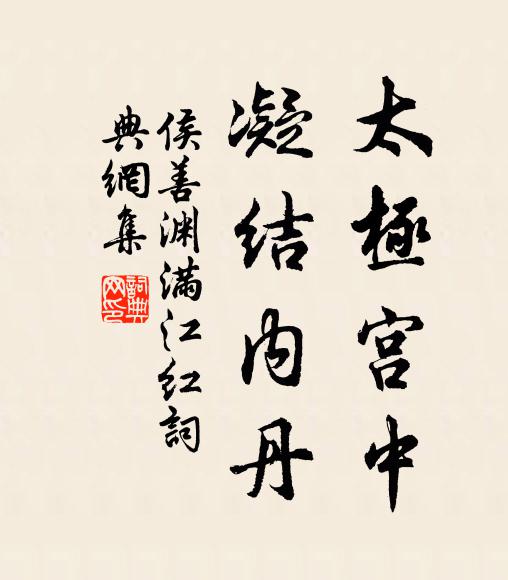 太極宫中
凝结内丹
侯善渊满江红詞
典網集
詞典网印